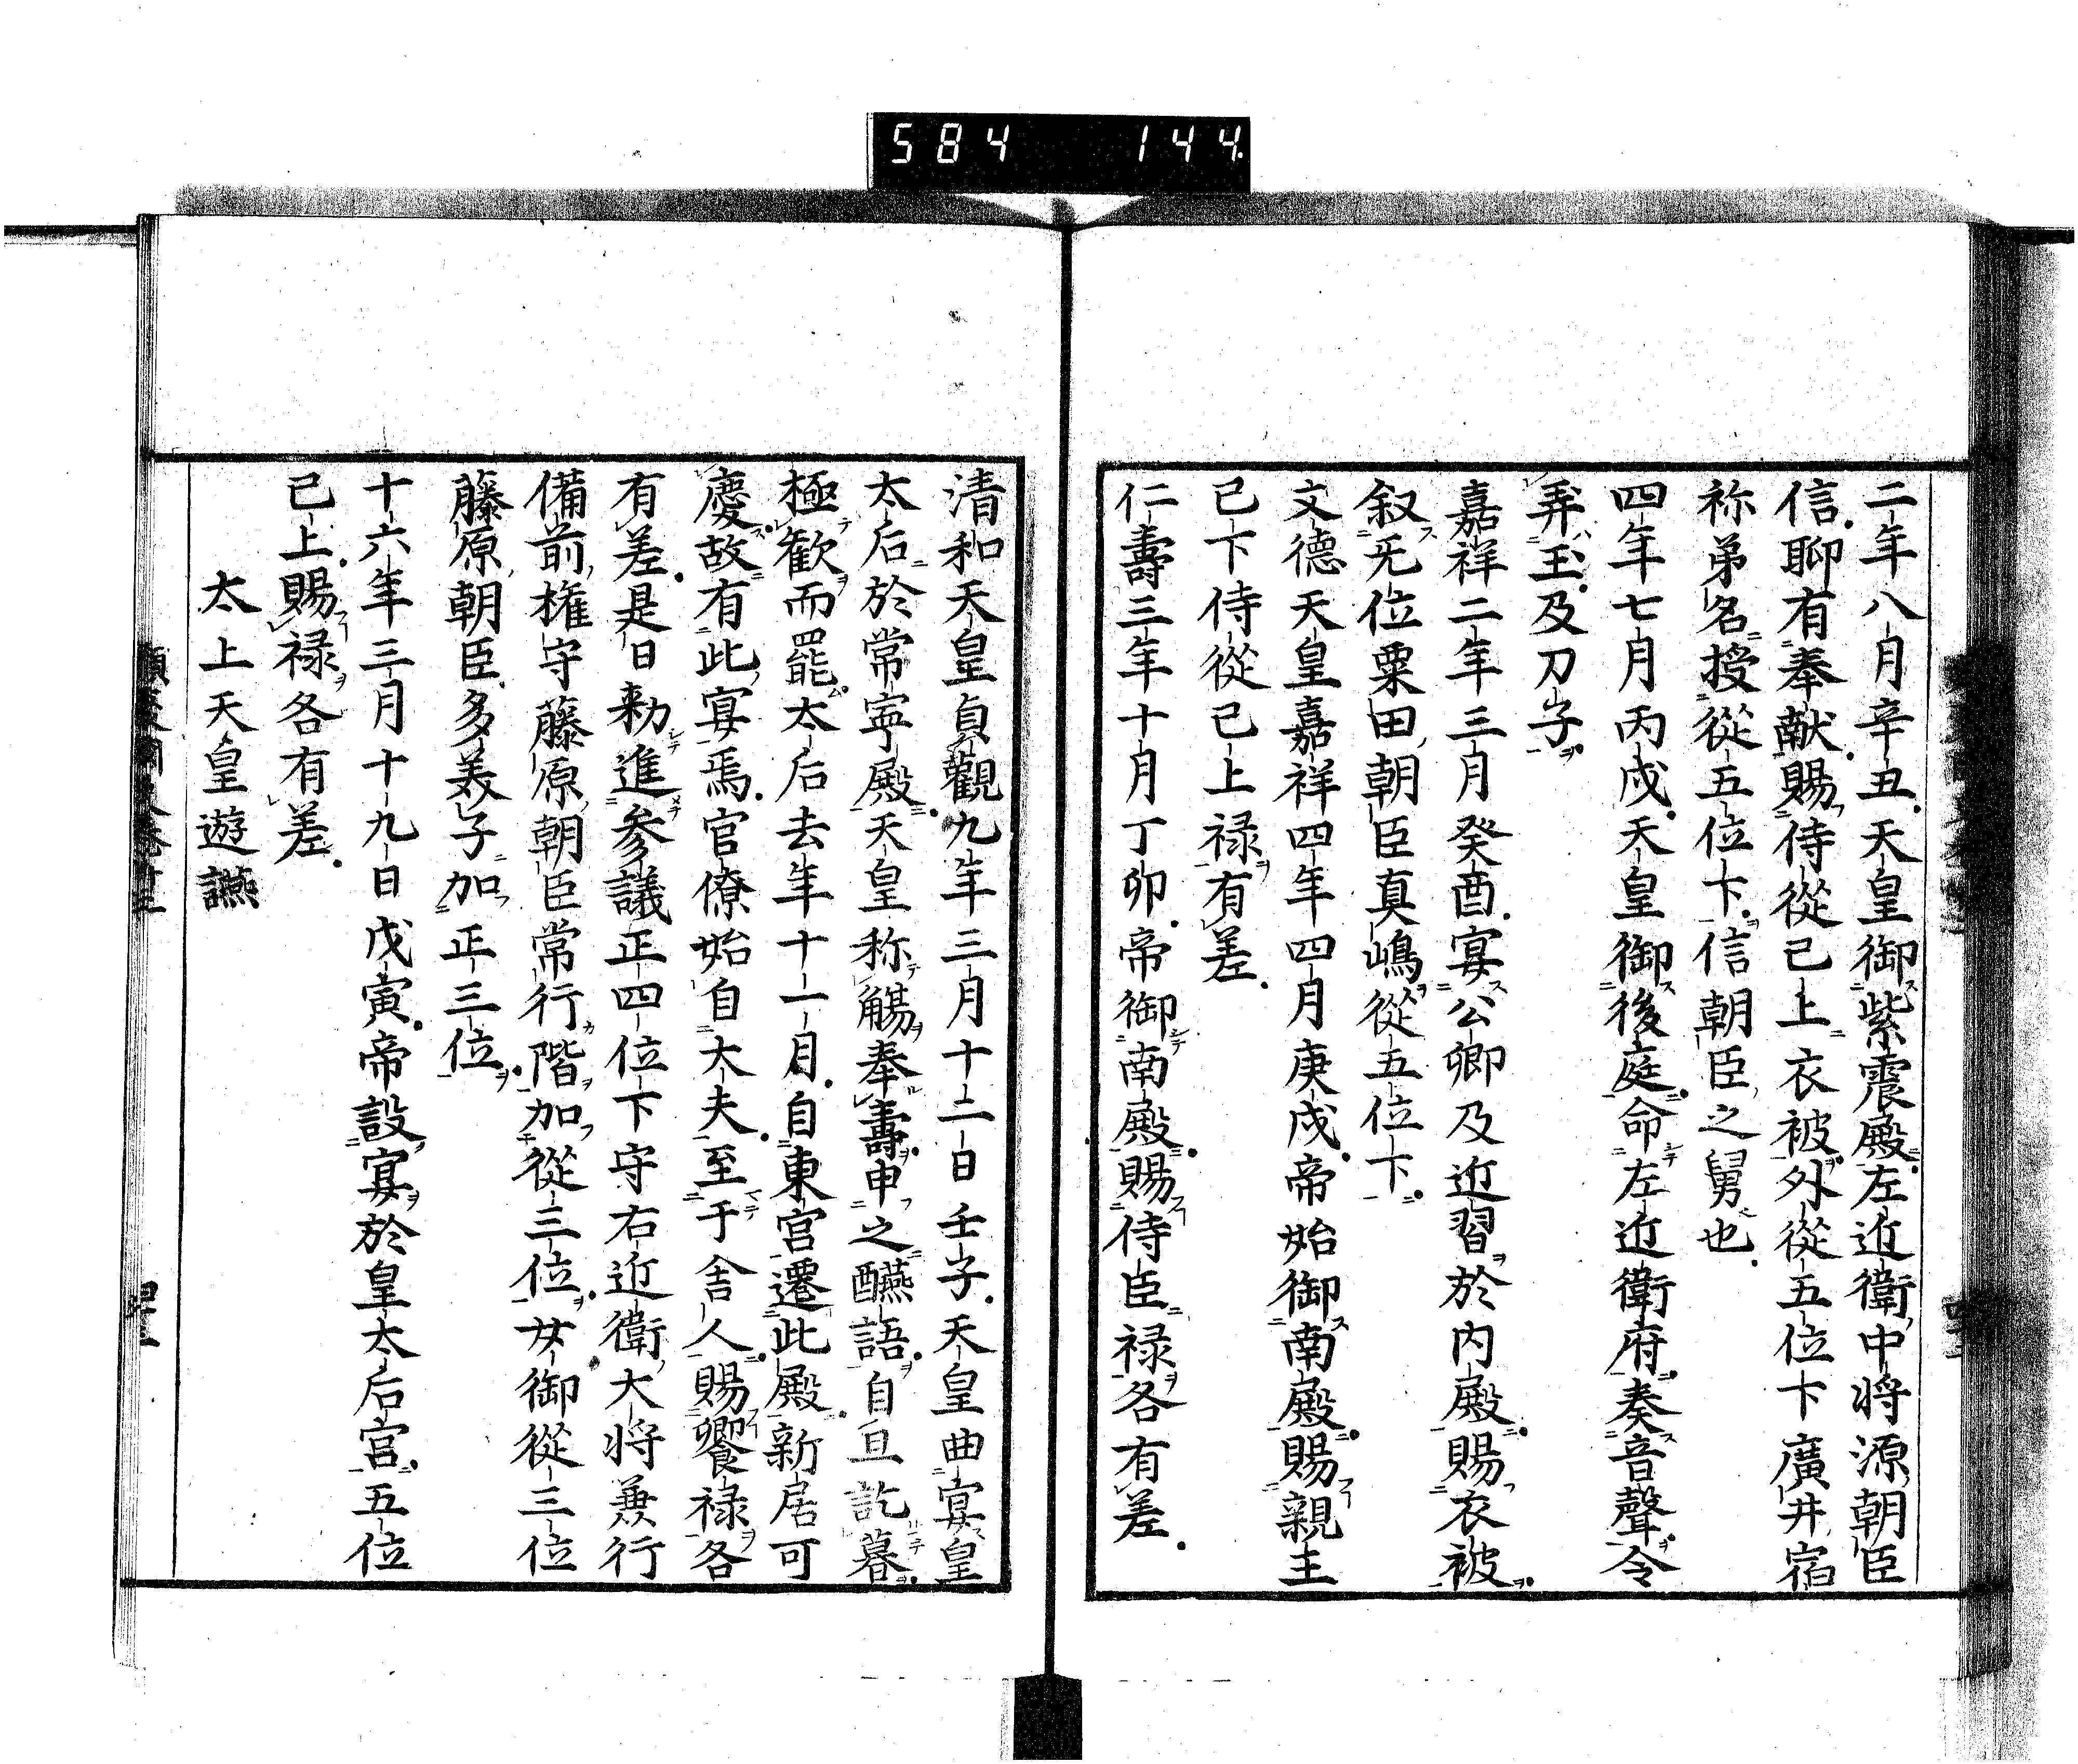 584 144
二年八月辛丑天皇御紫震殿左近衛中将源朝臣
信聊有奉献賜侍從已上衣被外從五位下廣井宿
祢弟名授從五位下信朝臣之舅也
四年七月丙戌天皇御後庭命左近衛府奏音聲令
弄玉及刀子
嘉祥二年三月癸酉宴公卿及近習於内殿賜衣被
叙无位粟田朝臣真嶋從五位下
文德天皇嘉祥四年四月庚戌帝始御南殿賜親王
已下侍從已上禄有差
仁壽三年十月丁卯帝御南殿賜侍臣禄各有差
清和天皇貞觀九年三月十二日壬子天皇曲宴皇
太后於常寧殿天皇称觴奉壽申之醼語自旦訖暮
極歓而罷太后去年十一月自東宮遷此殿新居可
慶故有此宴焉官僚始自大夫至于舎人賜饗禄各
有差是日勅進参議正四位下守右近衛大将兼行
備前權守藤原朝臣常行階加從三位女御從三位
藤原朝臣多美子加正三位
十六年三月十九日戊寅帝設宴於皇太后宮五位
已上賜禄各有差
太上天皇遊讌